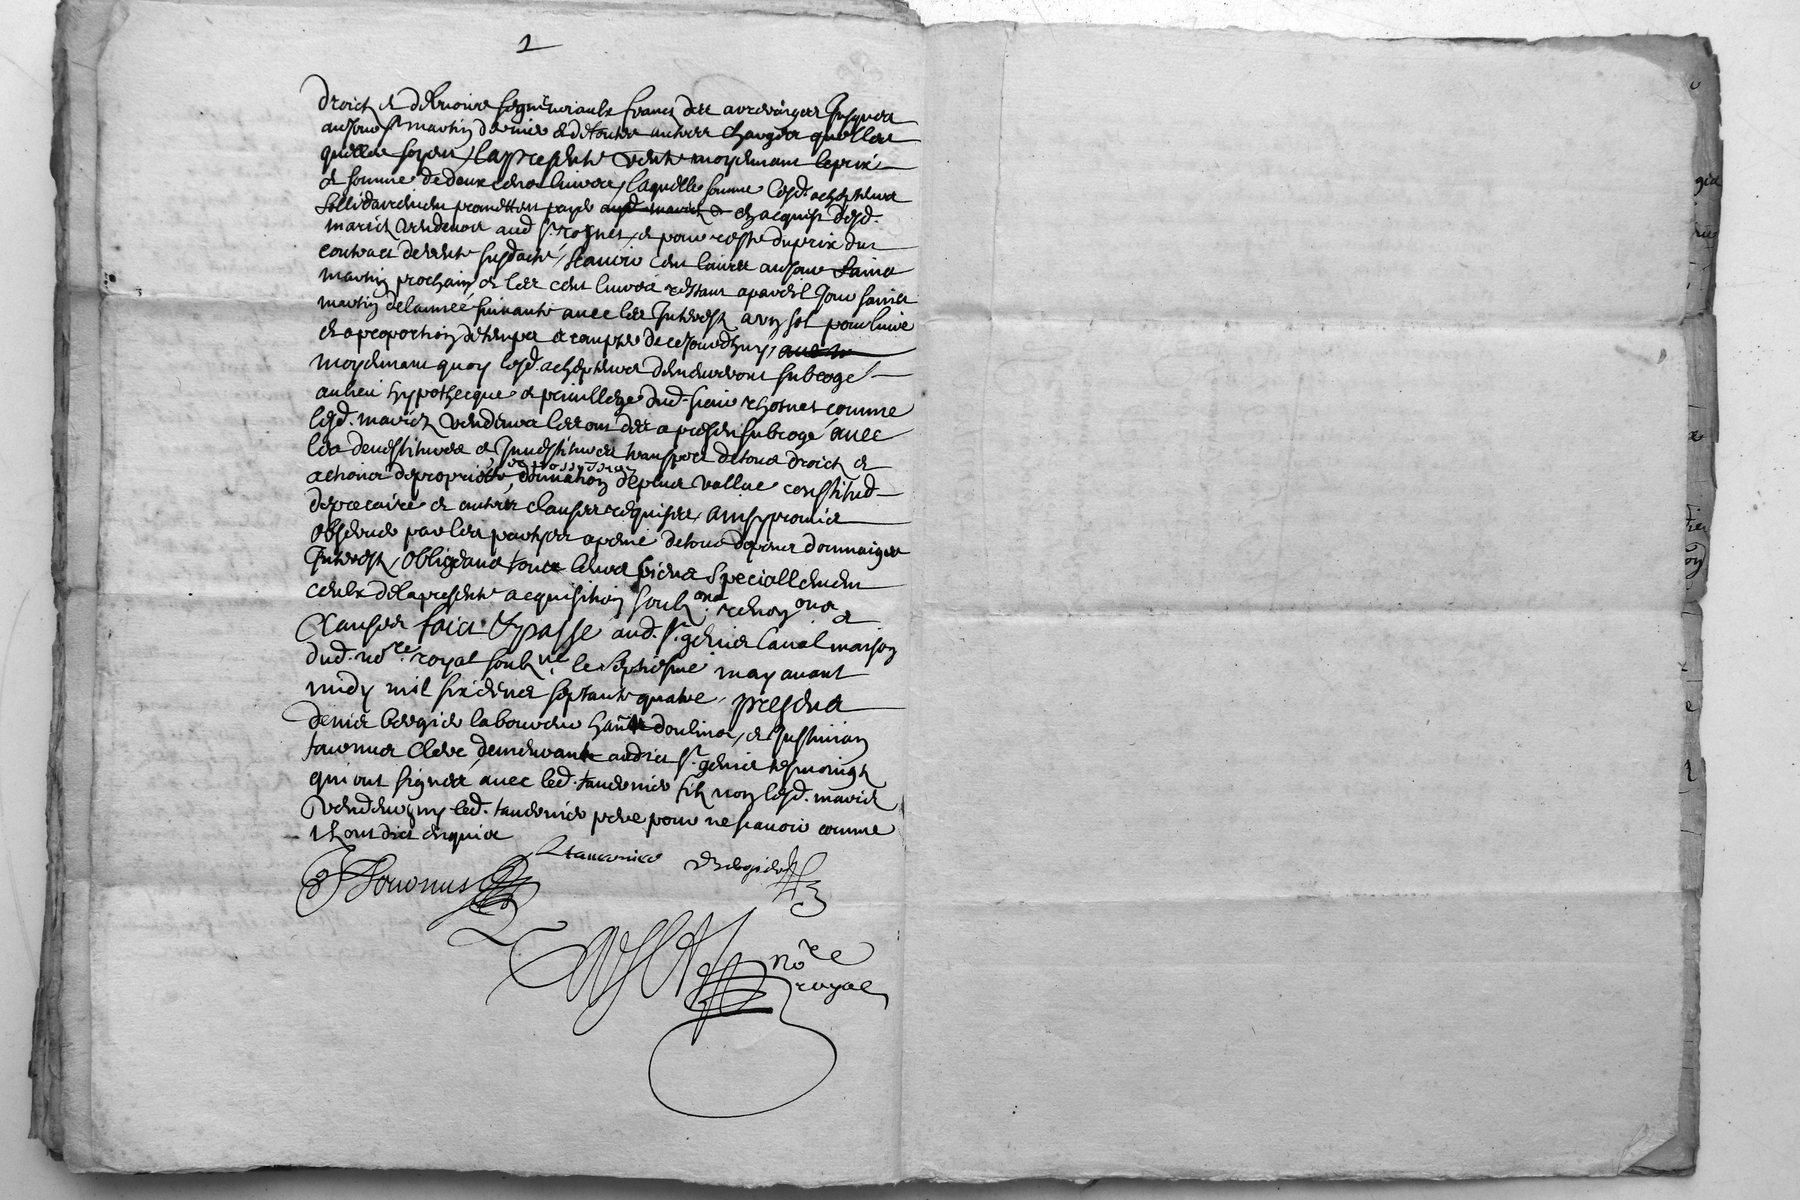 2
droictz et debvoirs seigneuriaulx francs des arreraiges Jusques
au Jour St martin dernier et de toutes autres charges quelles
quelles soyent, la presente vente moyenant le prix
et somme de deux cens livres, laquelle somme lesd. achepteurs
sollidairement promettent payer ausd. mariés et en acquist desd.
mariés vendeurs aud Sr et pour reste du prix du
contract de vente susdacté, scavoir cent livres au Jour Sainct
martin prochain et les cent livres restant a pareil Jour sainct
martin de lannée suivante avec les Interestz a ung sol pour livre
et a proportion de temps a compter de ce Jourdhuy,
moyenant quoy lesd. achepteurs demeureront subrogé
au lieu hypothecque et privillege dud. sieur comme
lesd. mariés vendeurs les ont des a present subrogé avec
les devestitures et Investitures transport de tous droictz et
actions de proprieté, et possession donnation de plus vallue constitud
de precaire et autres clauses requises, ainsy promis
observer par les parties a peine de tous depens dommaiges
Interestz, obligeans tous leurs biens speciallement
ceulx de la presente acquisition soubzons renonons et
clauses faict & passe aud. St. genis laval maison
dud. nore. royal soubzné. le septiesme may avant
midy mil six cens septante quatre, presens
denis bergier laboureur hant doulins, et Justinian
tournus clerc demeurants audict St. genis tesmoingz
qui ont signés avec led. tavernier filz non lesd. mariés
vendeurs ny led. tavernier pere pour ne scavoir comme
ilz ont dict enquis
L tavernier D bergier
J Tournus
nore
royal